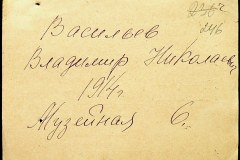 246
Васильев
Владимир Николаевич
1914 г.
Музейная 6.